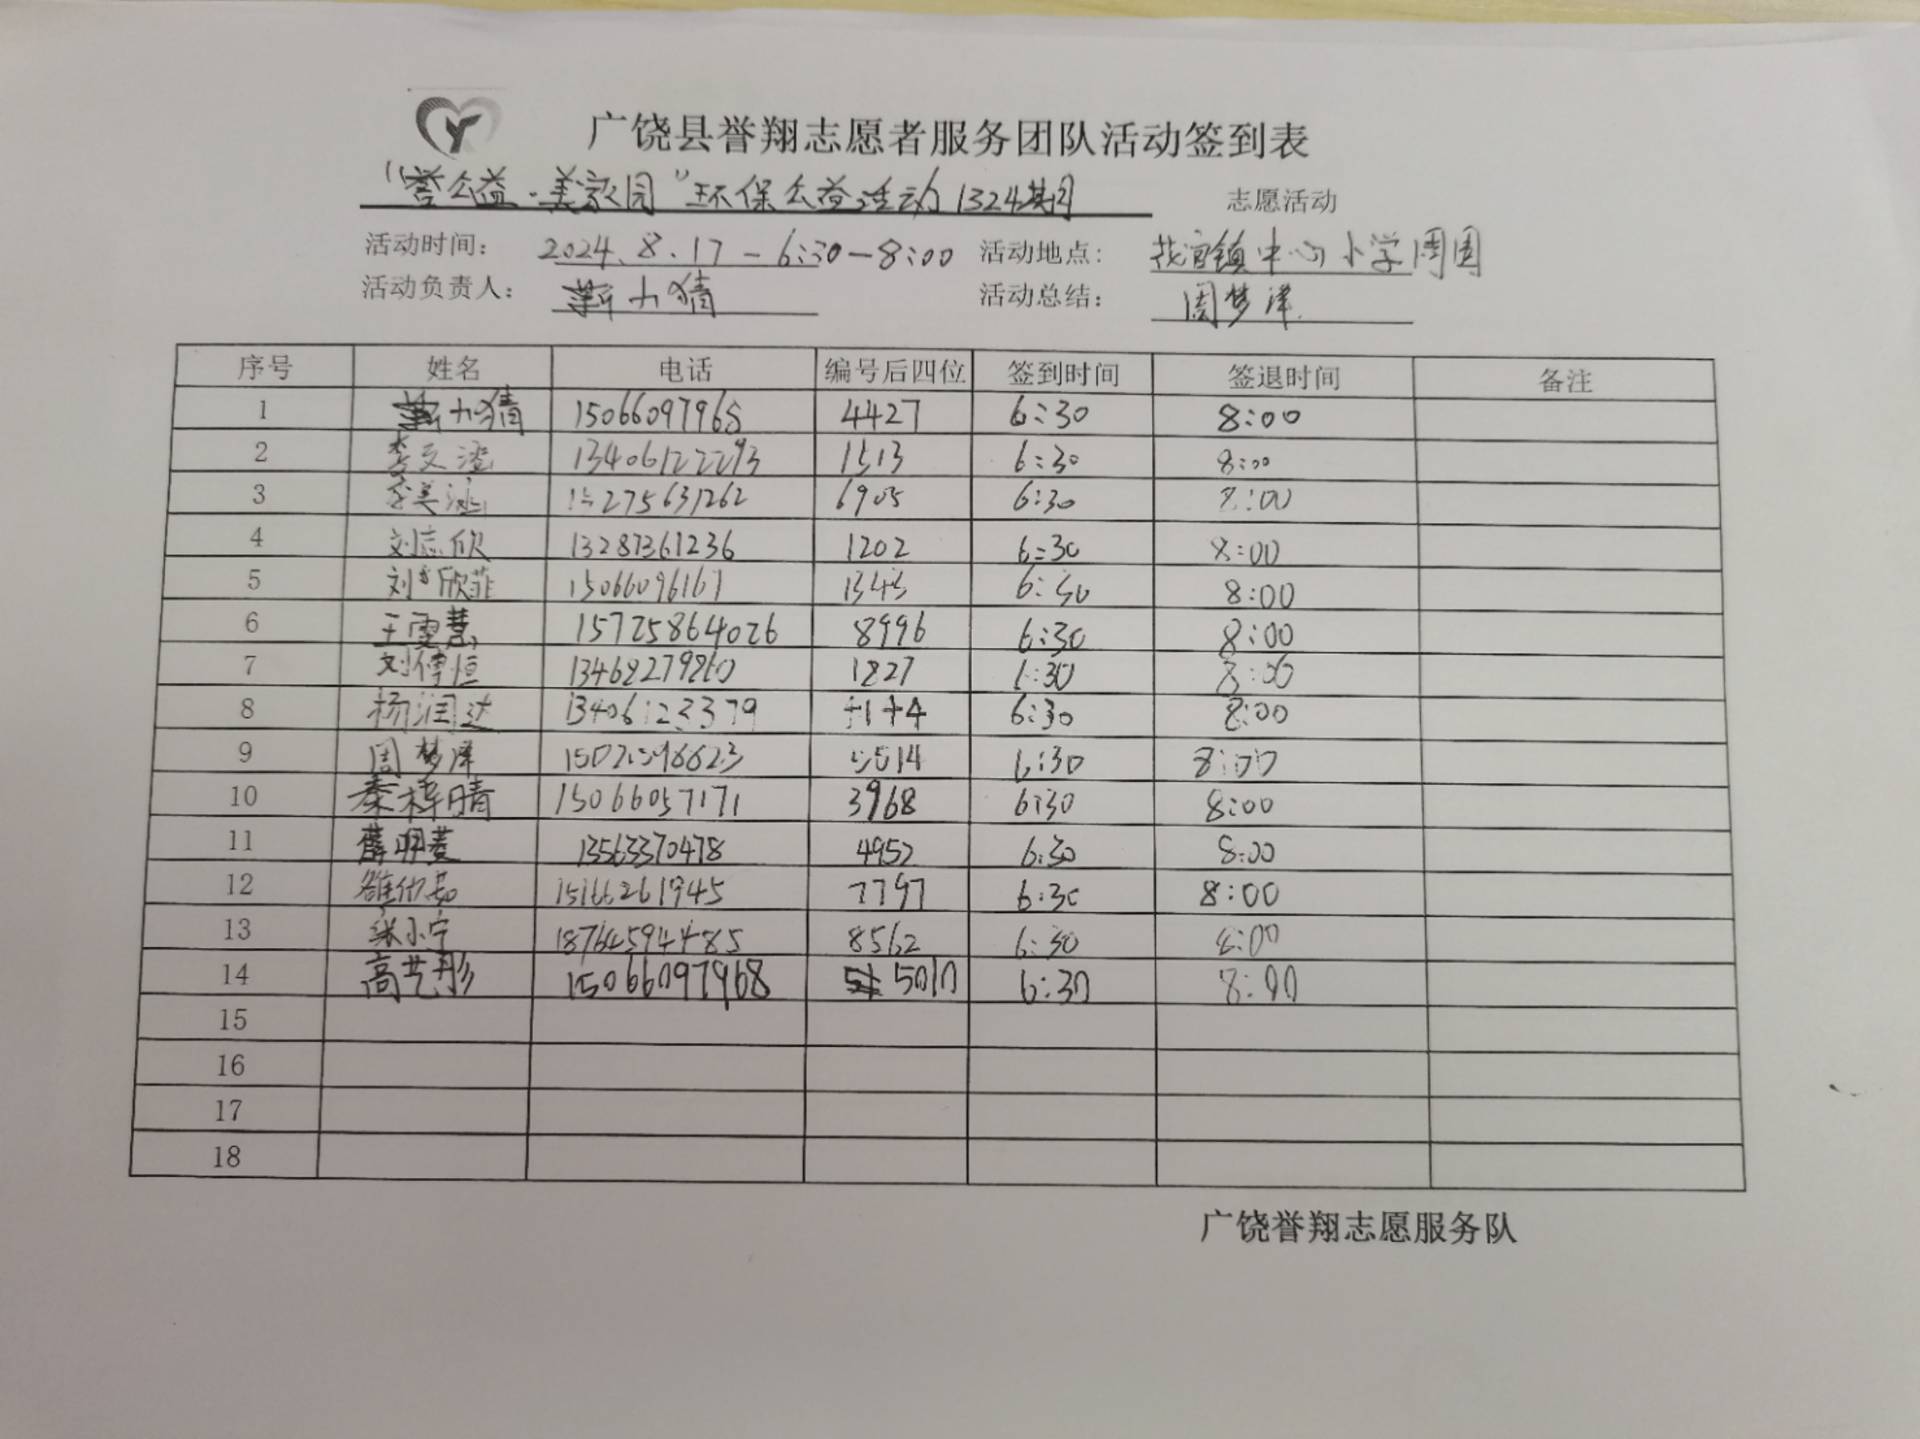 广饶县誉翔志愿者服务团队活动签到表
“誉公益·美家园”环保公益活动1324期 志愿活动
活动时间： 2024.8.17-6:30-8:00 活动地点： 花官镇中心小学周围
活动负责人： 靳小猜 活动总结： 周梦泽
序号 姓名 电话 编号后四位 签到时间 签退时间 备注
1 靳小猜 15066097968 4427 6:30 8:00
2 李文澄 13406122293 1513 6:30 8:00
3 李美涵 275631262 6905 6:30 8:00
4 刘志欣 13287361236 1202 6:30 8:00
5 刘欣菲 15066096167 1343 6:30 8:00
6 王雯慧 15725864026 8996 6:30 8:00
7 刘傅恒 13468279860 1827 6:30 8:00
8 杨润达 13406123379 6:30 8:00
9 周梦泽 5514 6:30 8:00
10 秦梓晴 15066057171 3968 6:30 8:00
11 13563370478 4952 6:30 8:00
12 15166261945 7797 6:30 8:00
13 张小宁 18764594485 8562 6:30 8:00
14 高艺彤 15066097968 5010 6:30 8:00
15
16
17
18
广饶誉翔志愿服务队